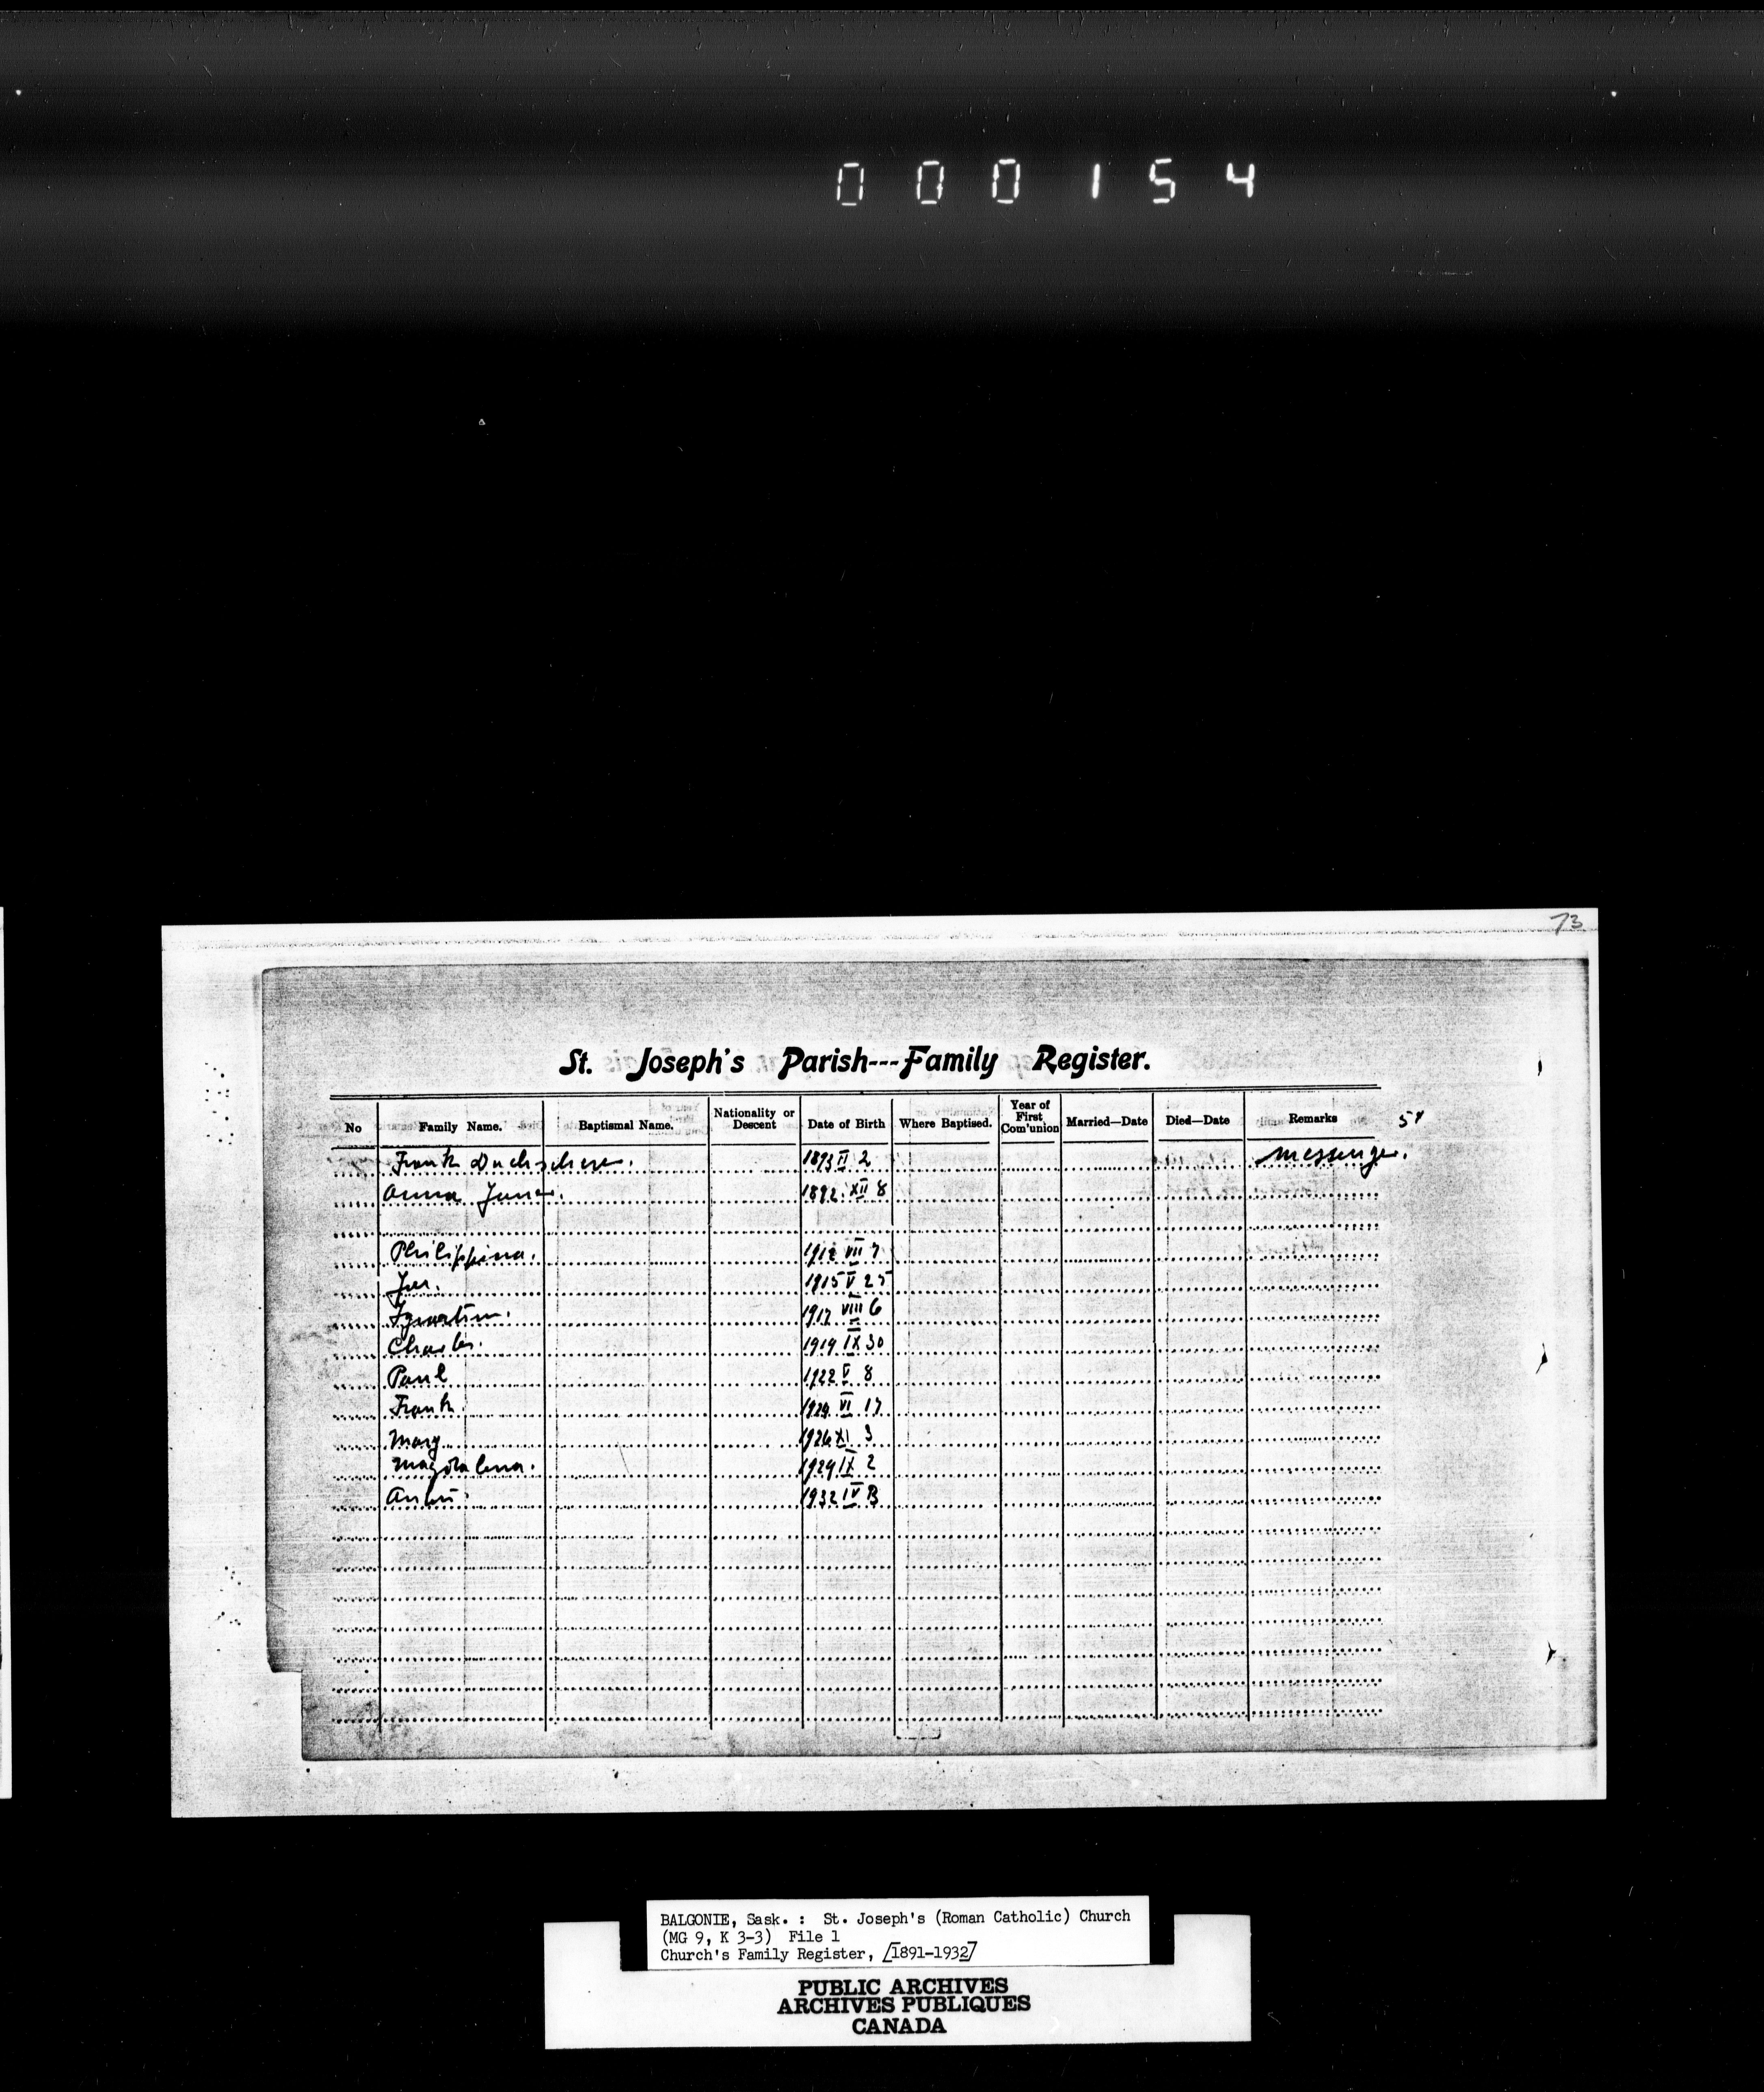 000154
73
St. Joseph's Parish---Family Register.
No Family Name. Baptismal Name. Nationality or Descent Date of Birth Where Baptised. Year of First Com'union Married—Date Died—Date Remarks
Frank Duchscherer. 1893 II 2 Messenger.
Anna 1892 XII 8
Philippina. 1912 VII 7
Jos. 1915 V 25
1917 VIII 6
Charles. 1919 IX 30
Paul 1922 V 8
Frank. VI 17
Mary 1926 XI 3
Magdalena. 1929 IX 2
1932 IV
BALGONIE, Sask. : St. Joseph's (Roman Catholic) Church
(MG 9, K 3-3) File 1
Church's Family Register, [1891-1932]
PUBLIC ARCHIVES
ARCHIVES PUBLIQUES
CANADA